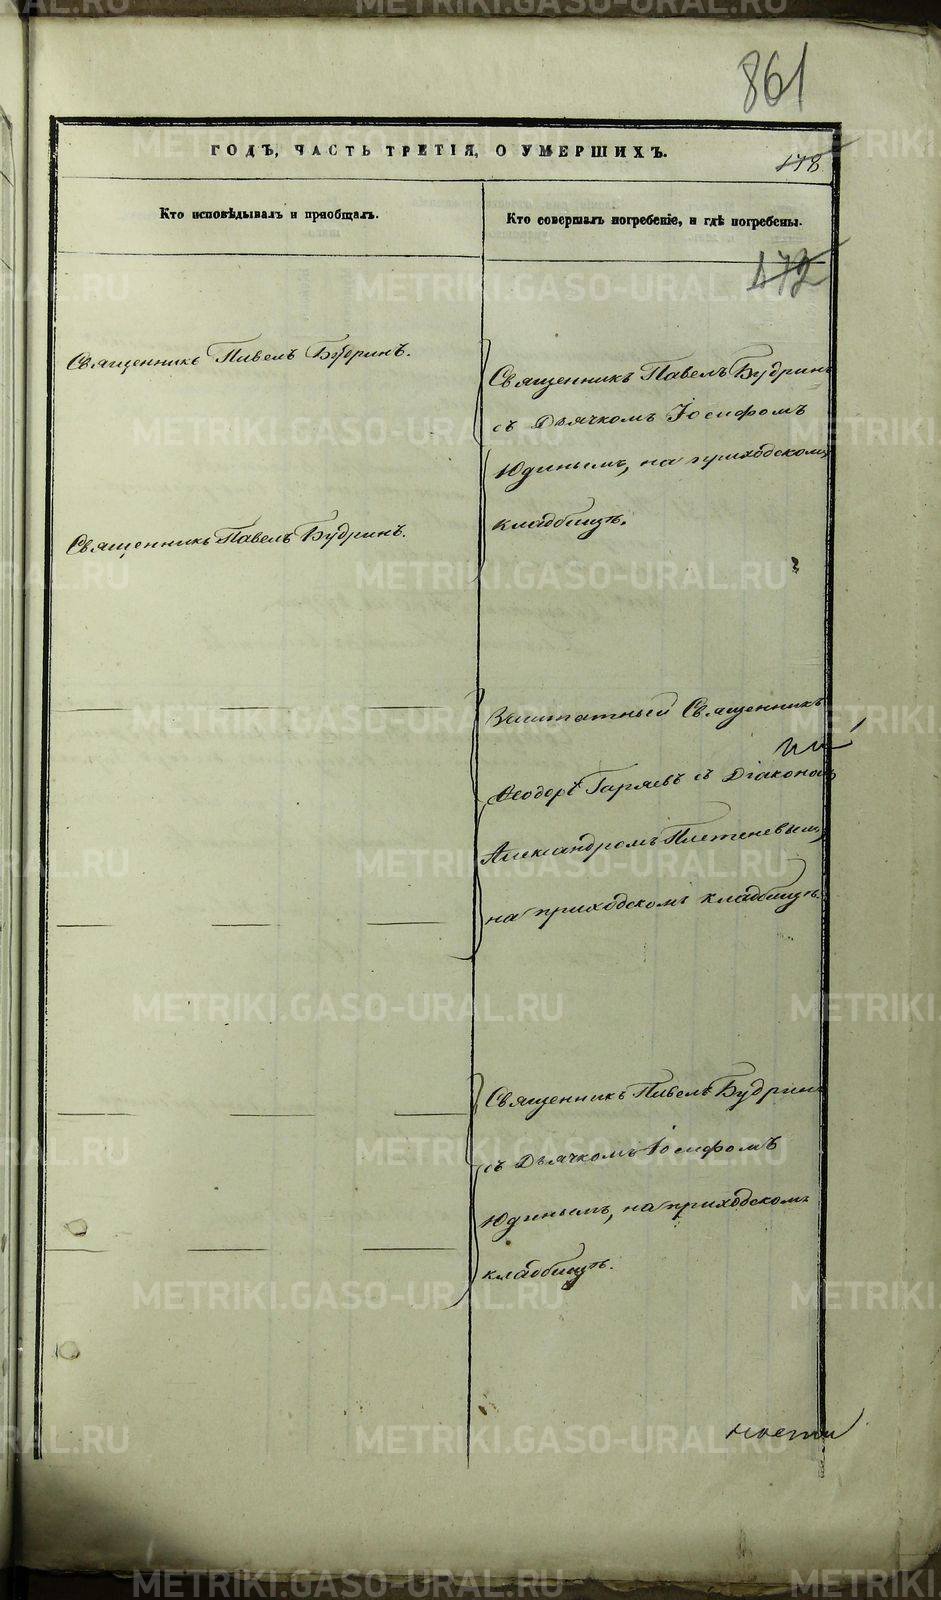 861
ГОДЪ, ЧАСТЬ ТРЕТІЯ, О УМЕРШИХЪ.
178
Кто исповѣдывалъ и пріобщалъ.
Кто совершалъ погребеніе, и гдѣ погребены.
472
Священникъ Павелъ Будринъ.
Священникъ Павелъ Будринъ
съ Дьячкомъ Іосифомъ
Юдинымъ, на приходскомъ
кладбищѣ.
Священникъ Павелъ Будринъ.
Заштатный Священникъ
Ѳеодоръ Гаряевъ съ Діакономъ
Александромъ Плетеневымъ,
на приходскомъ кладбищѣ.
Священникъ Павелъ Будринъ
съ Дьячкомъ Іосифомъ
Юдинымъ, на приходскомъ
кладбищѣ.
METRIKI.GASO-URAL.RU